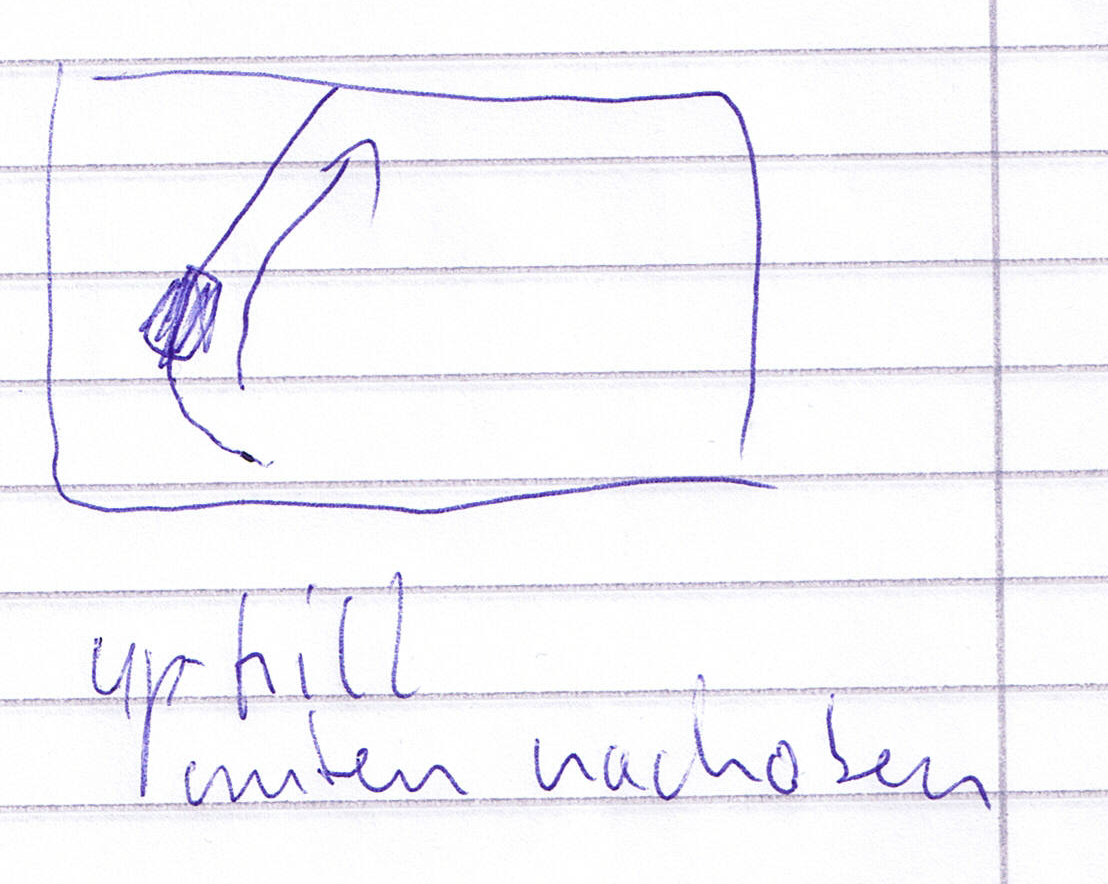 uphill
unten nach oben